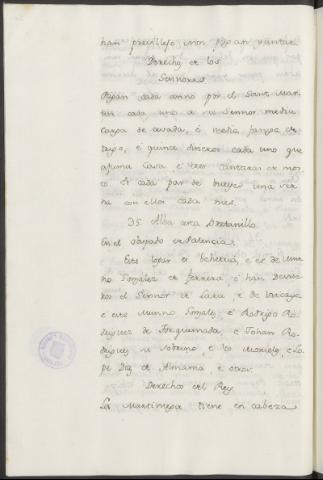 han previllejo non pagan yantar
Derechos de los
Sennores
Pagan cada anno por el Sant Mar
tin cada uno a su Sennor media
carga de cevada, é media fanega de
trigo, é quince dineros cada uno que
Casa, é tres cantaras de mos
to é cada par de bueyes una ser
na con ellos cada mes.
35 Alba cerca Dretanilla
En el obispado de Palencia
Este logar es behetria, é es de Mun
no Gonzalez de Herrera é han Devise
ros el Sennor de Lara, é de Vizcaya
é este Munno Gonzalez, é Rodrigo Ro
driguez de Torquemada, é Johan Ro
driguez su sobrino, é los é Lo
pe Diaz de Almansa, é otros.
Derechos del Rey
La Martiniega tiene en cabeza